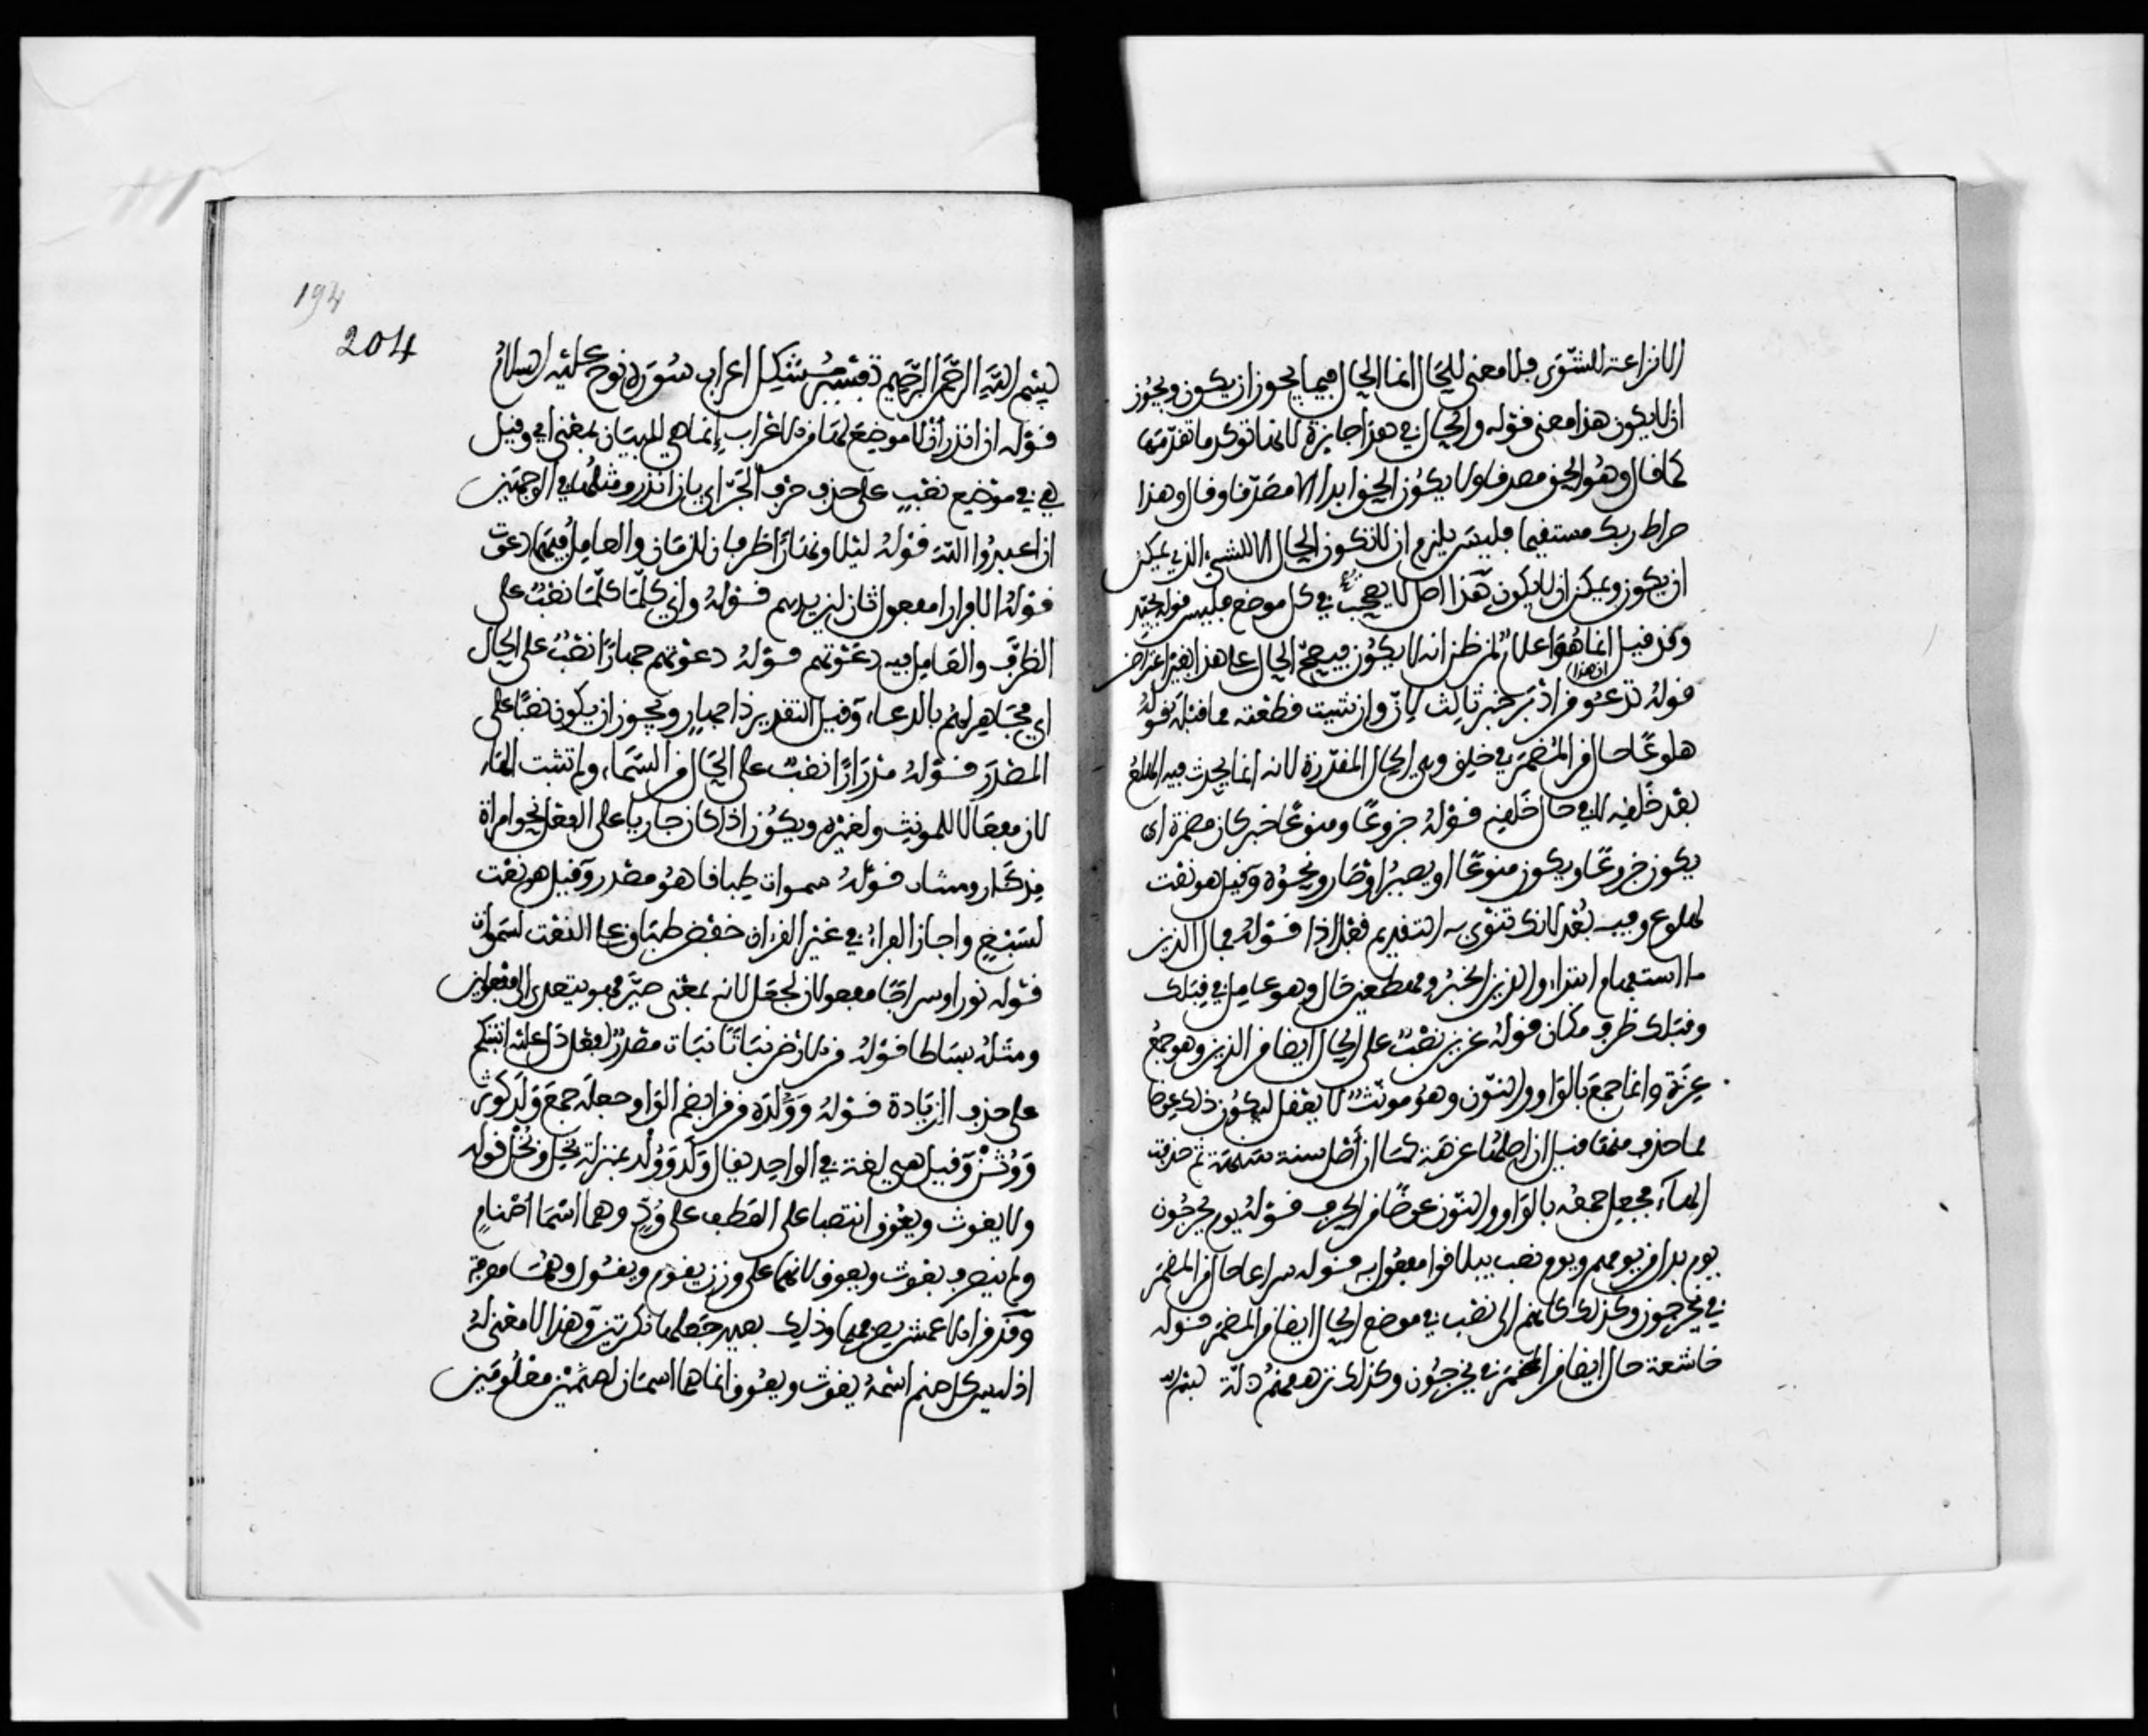 الا نزاعة للشوى فلا معنى للحال انما الحال فيما يجوز ان يكون ويجوز
ان لا يكون هذا معنى قوله والحال في هذا جايزة لانها توكد ما تقدمها
كما قال وهو الحق مصدقا ولا يكون الحق ابدا الا مصدقا وقال وهذا
صراط ربك مستقيما فليس يلزم ان لا تكون الحال الا للشيء الذي يمكن
ان يكون ويمكن ان لا يكون هذا اصل لا يصحب في كل موضع فليس قوله بجيد
وقد قيل ان هذا انما هو اعلام لمن ظن انه لا يكون فيصح الحال على هذا بغير اعتراض
قوله تدعو من ادبر خبر ثالث لان وان شيت قطعته مما قبله قوله
هلوعا حال من المضمر في خلق وهي الحال المقدرة لانه انما يحدث فيه الهلع
بعد خلقه لا في حال خلقه قوله جزوعا ومنوعا خبر كان مضمرة اي
يكون جزوعا ويكون منوعا او يصير او صار ونحوه وقيل هو نعت
لهلوع وفيه بعد لانك تنوي به التقديم قبل اذا قوله فمال الذين
ما استفهام ابتداء والذين الخبر ومهطعين حال وهو عامل في قبلك
وقبلك ظرف مكان قوله عزين نصب على الحال ايضا من الذين وهو جمع
عزة وانما جمع بالواو والنون وهو مونث لا يعقل ليكون ذلك عوضا
مما حذف منها قيل ان اصلها عزهة كما ان اصل سنة سنهة ثم حذفت
الهاء فجعل جمعه بالواو والنون عوضا من الحرف قوله يوم يخرجون
يوم بدل من يومهم ويوم نصب بيلاقوا مفعول به قوله سراعا حال من المضمر
في يخرجون وكذلك كانهم الى نصب في موضع الحال ايضا من المضمر قوله
خاشعة حال ايضا من المضمر في يخرجون وكذلك ترهقهم ذلة بسم الله
194
204
بسم الله الرحمن الرحيم تفسير مشكل اعراب سورة نوح عليه السلام
قوله ان انذر ان لا موضع لها من الاعراب انما هي للبيان بمعنى اي وقيل
هي في موضع نصب على حذف حرف الجر اي بان انذر ومثلها في الوجهين
ان اعبدوا الله قوله ليلا ونهارا ظرفان للزمان والعامل فيهما دعوت
قوله الا فرارا مفعول ثان ليزيدهم قوله واني كلما كلما نصب على
الظرف والعامل فيه دعوتهم قوله دعوتهم جهارا نصب على الحال
اي مجاهرا لهم بالدعاء وقيل التقدير ذا جهار ويجوز ان يكون نصبا على
المصدر قوله مدرارا نصب على الحال من السماء ولم تثبت الهاء
لان مفعالا للمونث ولغيره ويكون اذا كان جاريا على الفعل نحو امراة
مذكار ومينات قوله سموات طباقا هو مصدر وقيل هو نعت
لسبع واجاز الفراء في غير القران خفض طباق على النعت لسموات
قوله نورا وسراجا مفعولان لجعل لانه بمعنى صير فهو يتعدى الى مفعولين
ومثله بساطا قوله من الارض نباتا نبات مصدر لفعل دل عليه انبتكم
على حذف الزيادة قوله وولده من قرا بضم الواو جعله جمع ولد كوثن
ووثن وقيل هي لغة في الواحد يقال ولد وولد بمنزلة بخل وبخل قوله
ولا يغوث ويعوق انتصبا على العطف على ود وهما اسما اصنام
ولم ينصرف يغوث ويعوق لانهما على وزن يقوم ويقول وهما معرفة
وقد قرا الاعمش بصرفهما وذلك بعيد جعلهما نكرتين وهذا لا معنى له
اذ ليس كل صنم اسمه يغوث ويعوق انما هما اسمان لصنمين معلومين